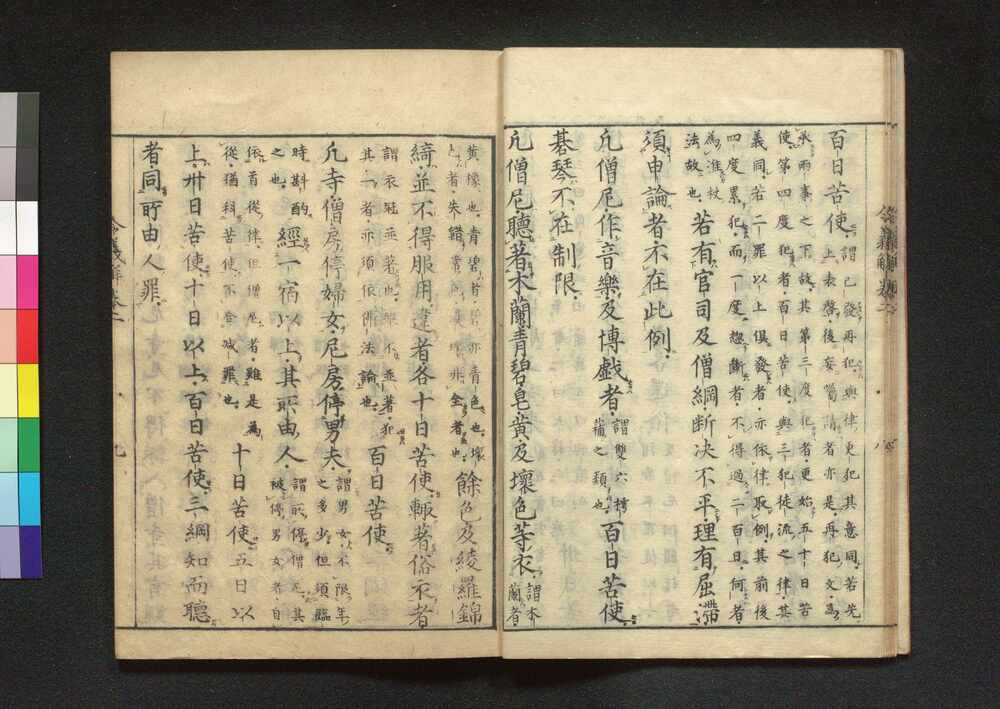 百日苦使
謂已發再犯與律更犯其意同若先
上表啓後妄囑請者亦是再犯文爲
承雨事之下故其第三度犯者更始五十日苦
使第四度犯者百日苦使與三犯徒流之律其
義同若二罪以上俱發者亦依律取例其前後
四度累犯而一度斷者不得過二百日何者
爲准杖
法故也
若有官司及僧綱断决不平理有屈滯
須申論者不在此例
凢僧尼作音樂及博戯者
謂雙六樗
蒱之類也
百日苦使
碁琴不在制限
凢僧尼聽著木蘭青碧皂黄及壞色等衣
謂木
蘭者
黄橡也青碧者碧亦青色也壞
色者失錯常色其壞非全者也
餘色及綾羅錦
綺並不得服用違者各十日苦使輙著俗衣者
謂衣冠並著也不並著犯
其一者亦須依佛法論也
百日苦使
凢寺僧房停婦女尼房停男夫
謂男女不限年
之多少但須臨
時斟酌
之也
經一宿以上其所由人
謂所停僧尼其
被停男女者自
依首從律但僧尼者雖是為
從猶科苦使不合减罪也
十日苦使五日以
上卅日苦使十日以上百日苦使三綱知而聽
者同所由人罪
令義解卷二
九